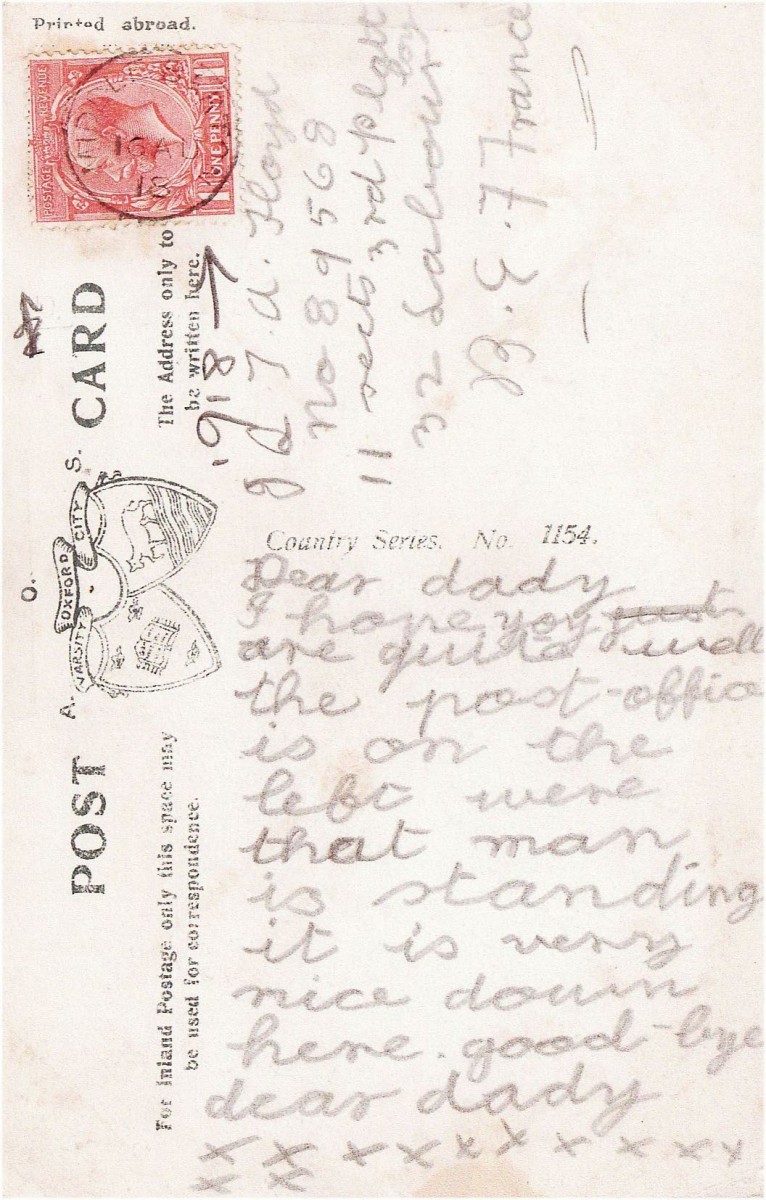 Printed abroad.
POSTAGE REVENUE
ONE PENNY
16 AU
18
POST CARD
A. O. S.
VARSITY OXFORD CITY
The Address only to
be written here.
1918
For Inland Postage only this space may
be used for correspondence.
T. A. Floyd
No 89568
11 sects 3rd
32 Labour
B. E. F France
Country Series. No. 1154.
Dear dady
I hope you
are quite well
the post-office
is on the
left were
that man
is standing
it is very
nice down
here. good-bye
dear dady
x x x x x x x x x x
x x